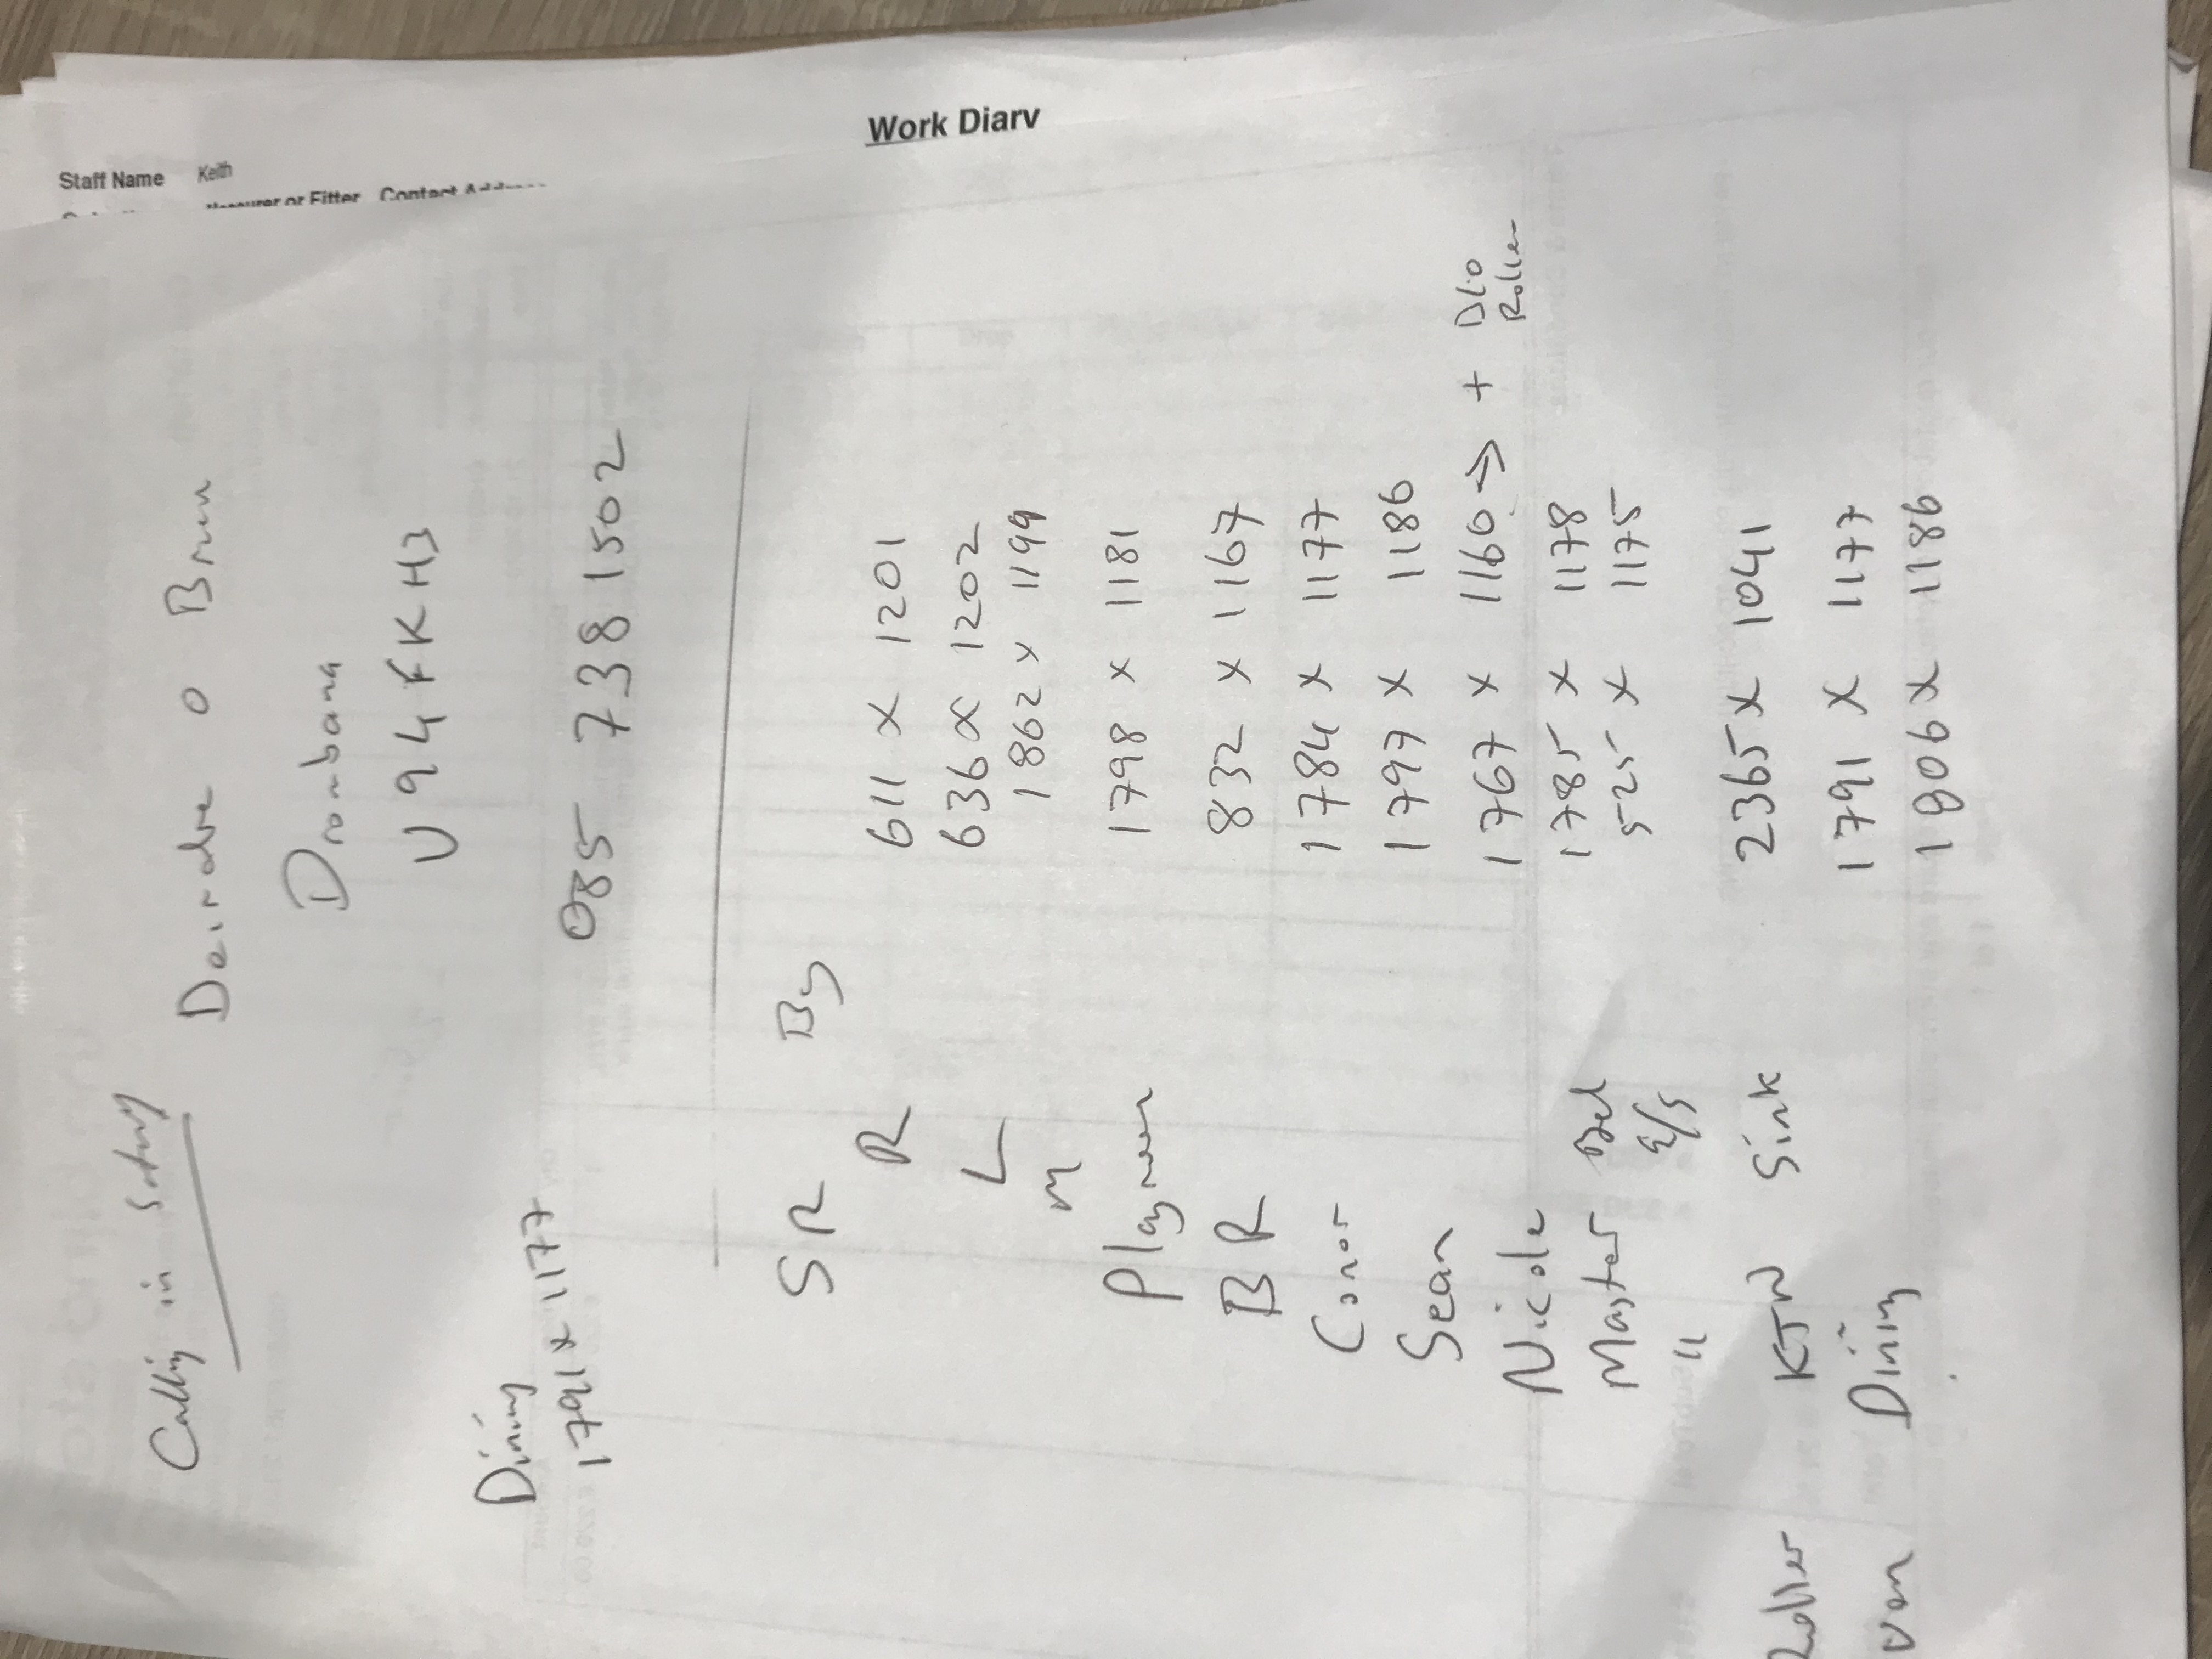 Work Diary
Staff Name Keith
Measurer or Fitter Contact Address
Calling in
Deirdre O Brien
Drombana
V94FKH3
Dining
1791 x 1177
085 738 1502
SR By
R 611 x 1201
L 636 x 1202
M 1862 x 1199
Playroom 1798 x 1181
BR 832 x 1167
Conor 1784 x 1177
Sean 1797 x 1186
Nicole 1767 x 1160 → + Blo
Roller
Master Bed 1785 x 1178
" E/S 525 x 1175
Roller KTN Sink 2365 x 1041
Ven Dining 1791 x 1177
1806 x 1186